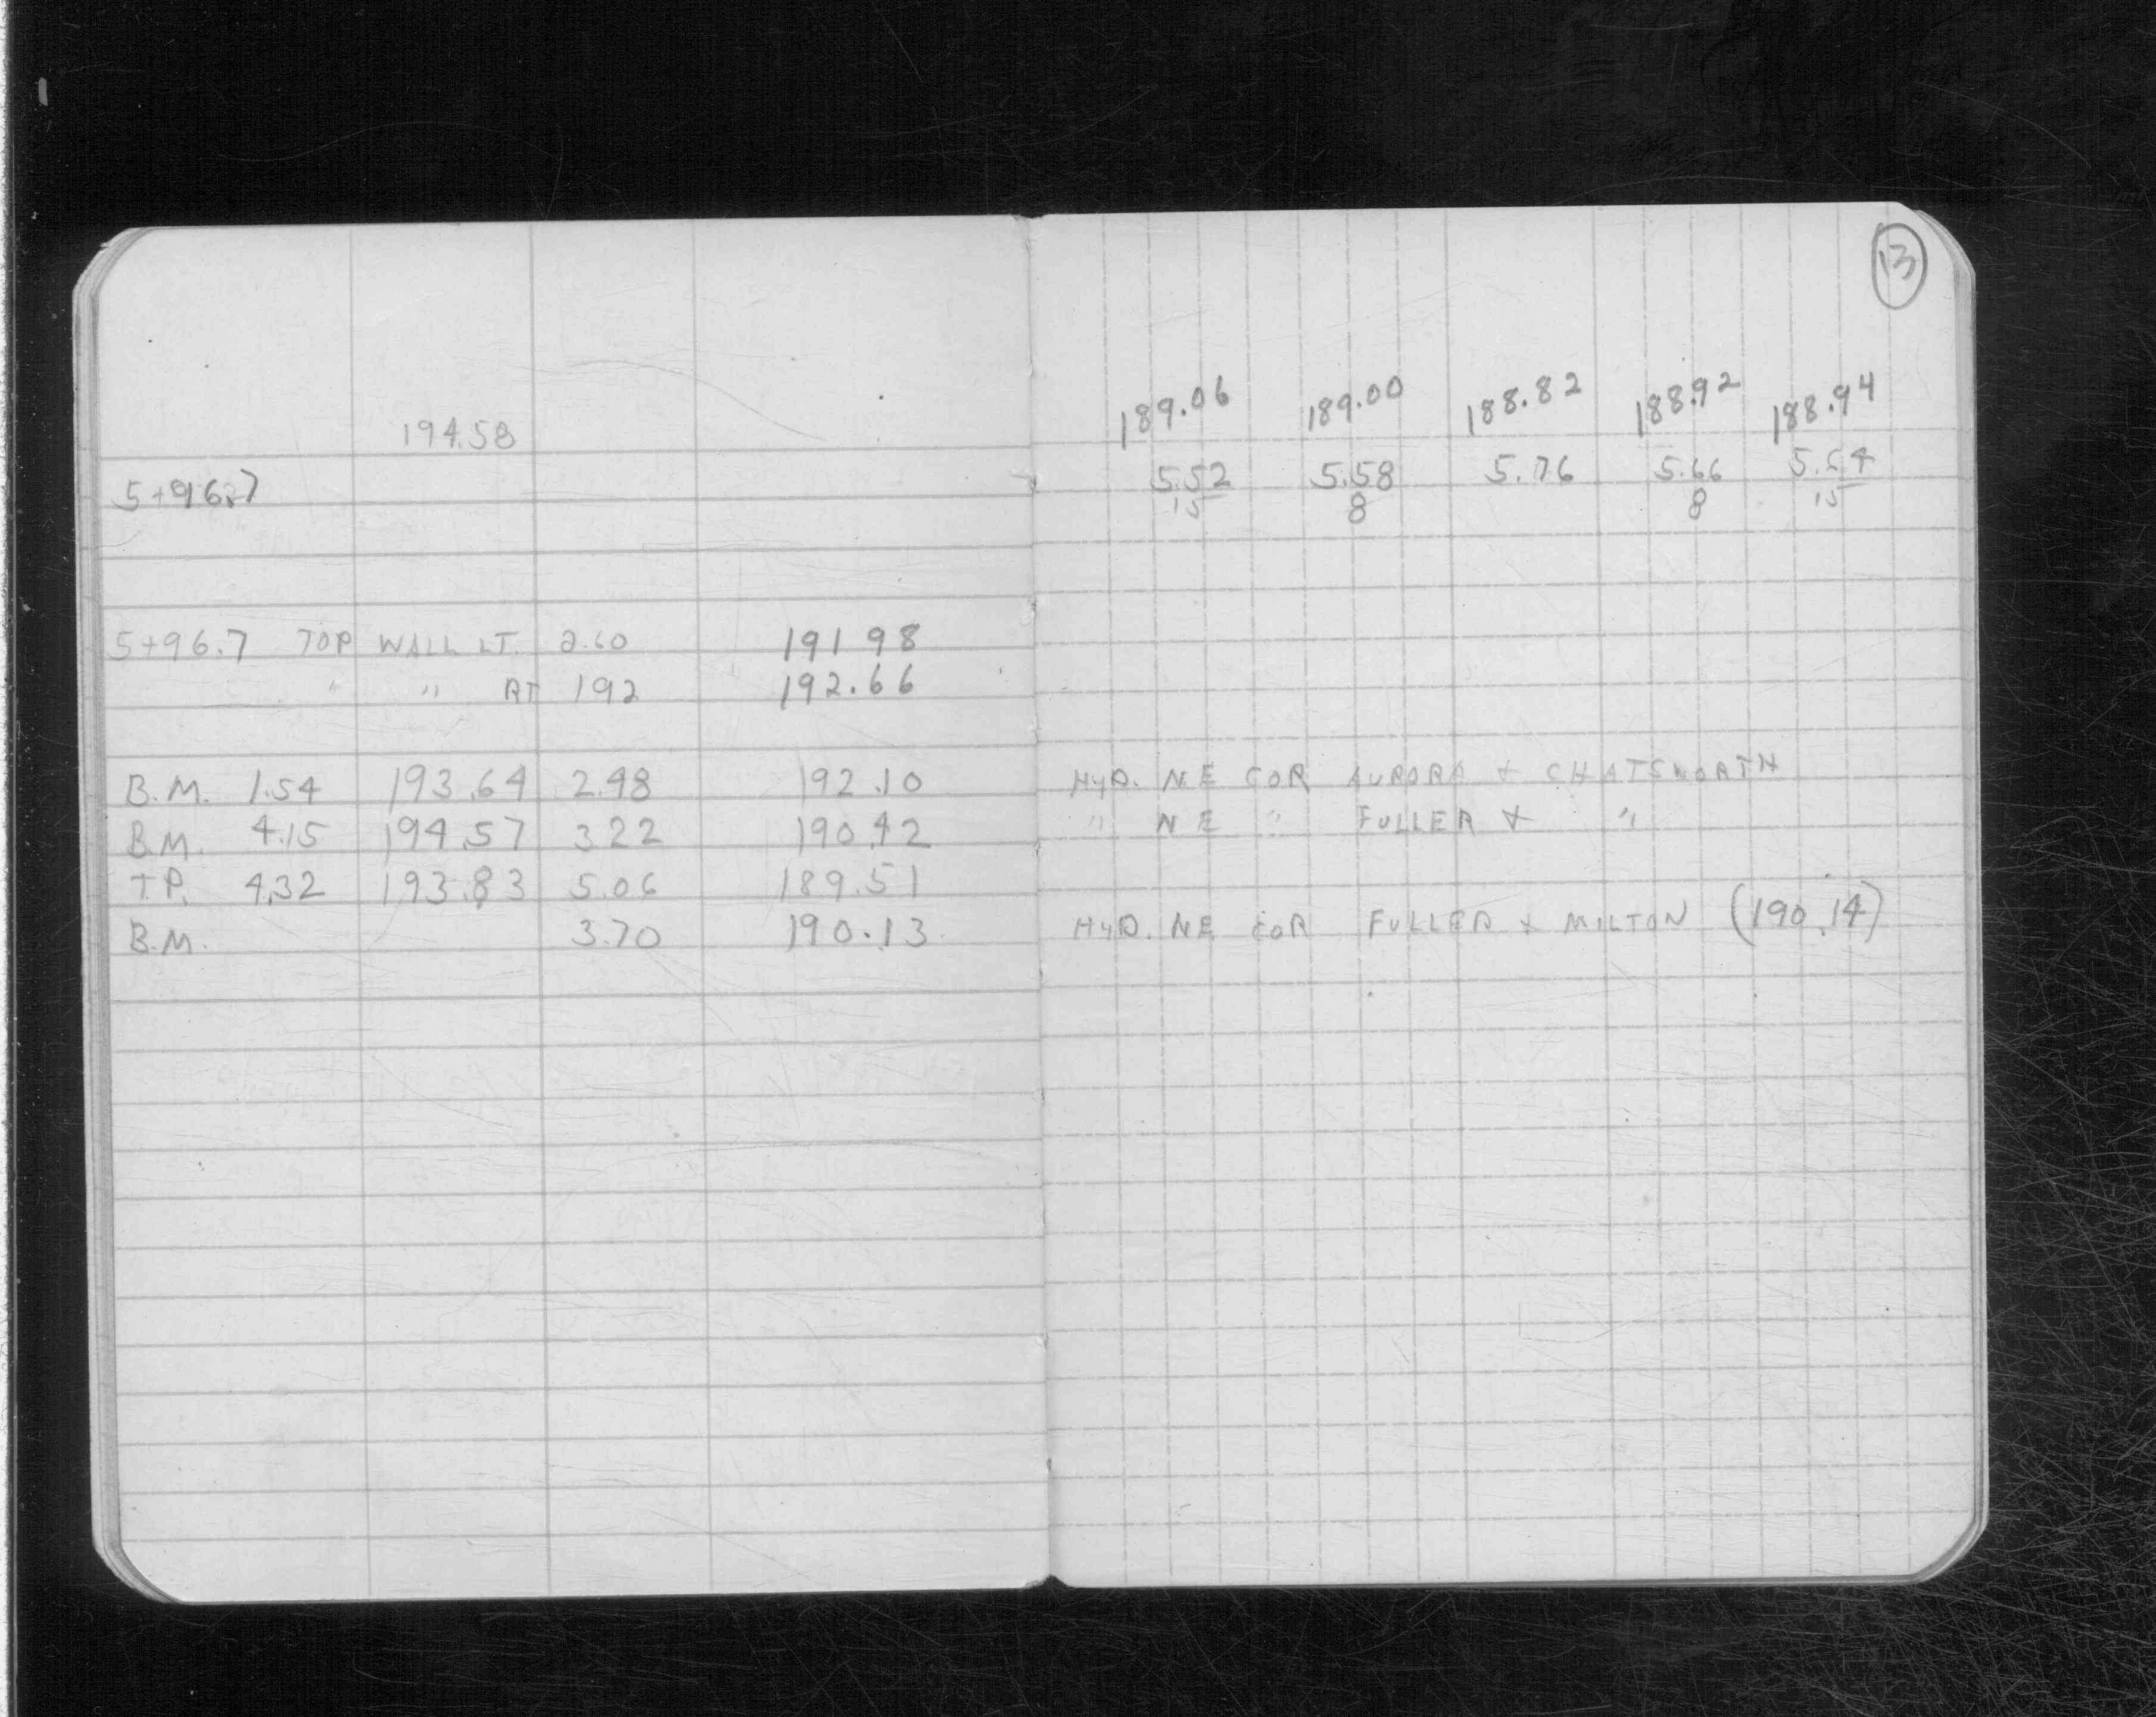 13
189.06 189.00 188.82 188.92 188.94
194.58
5+96.7 5.52 5.58 5.76 5.66 5.54
15 8 8 15
5+96.7 TOP WALL LT. 2.60 191 98
" " RT 192 192.66
B.M. 1.54 193.64 2.48 192.10 HYD. NE COR AURORA & CHATSWORTH
B.M. 4.15 194.57 3.22 190.42 " NE " FULLER & "
T.P. 4.32 193.83 5.06 189.51
B.M. 3.70 190.13 HYD. NE COR FULLER & MILTON (190.14)